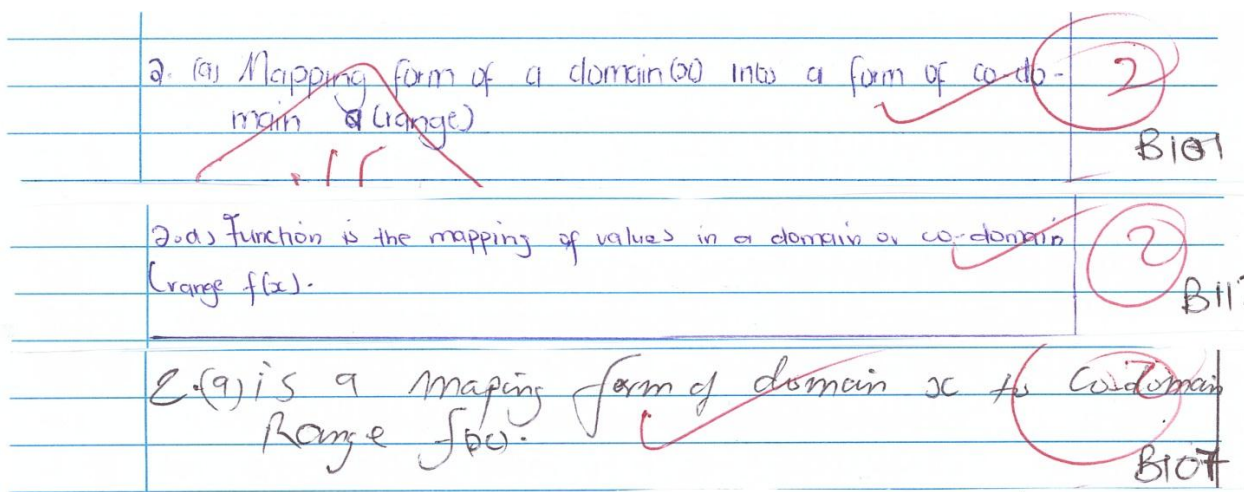 2. (a) Mapping form of a domain (x) into a form of co-do-
main (range)
2
B107
2.a) Function is the mapping of values in a domain or co-domain
(range f(x).
2
B117
2.(a) is a maping form of domain x to Co-domain
Range f(x).
2
B107